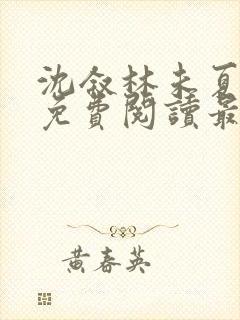 沈叙林未夏
免費閱讀最
黃春英